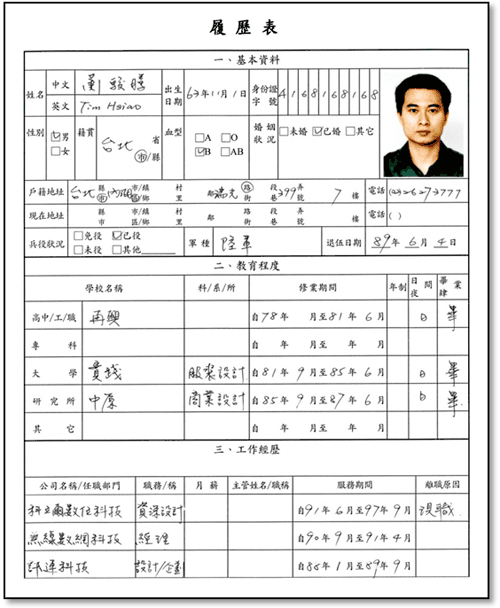 履歷表
一、基本資料
姓名 中文 劉駿騰 出生日期 63年11月1日 身份證字號 A168168168
英文 Tim Hsiao
性別 ☑男 □女 籍貫 台北 省 市/縣 血型 □A □O ☑B □AB 婚姻狀況 □未婚 ☑已婚 □其它
戶籍地址 台北 縣市 內湖 市/鎮區/鄉 村里 鄰 瑞光 路街 段巷 399 弄號 7 樓 電話 (02)6273777
現在地址 縣市 市/鎮區/鄉 村里 鄰 路街 段巷 弄號 樓 電話 ( )
兵役狀況 □免役 ☑已役 □未役 □其他 軍種 陸軍 退伍日期 89年6月4日
二、教育程度
學校名稱 科/系/所 修業期間 年制 日間 夜 畢業 肄
高中/工/職 再興 自78年 月至81年6月 日 畢
專科 自 年 月至 年 月
大學 實踐 服裝設計 自81年9月至85年6月 日 畢
研究所 中原 商業設計 自85年9月至87年6月 日 畢
其它 自 年 月至 年 月
三、工作經歷
公司名稱/任職部門 職務/稱 月薪 主管姓名/職稱 服務期間 離職原因
科立爾數位科技 資深設計 自91年6月至97年9月 現職
無線數網科技 經理 自90年9月至91年4月
訊連科技 設計/企劃 自88年1月至89年9月